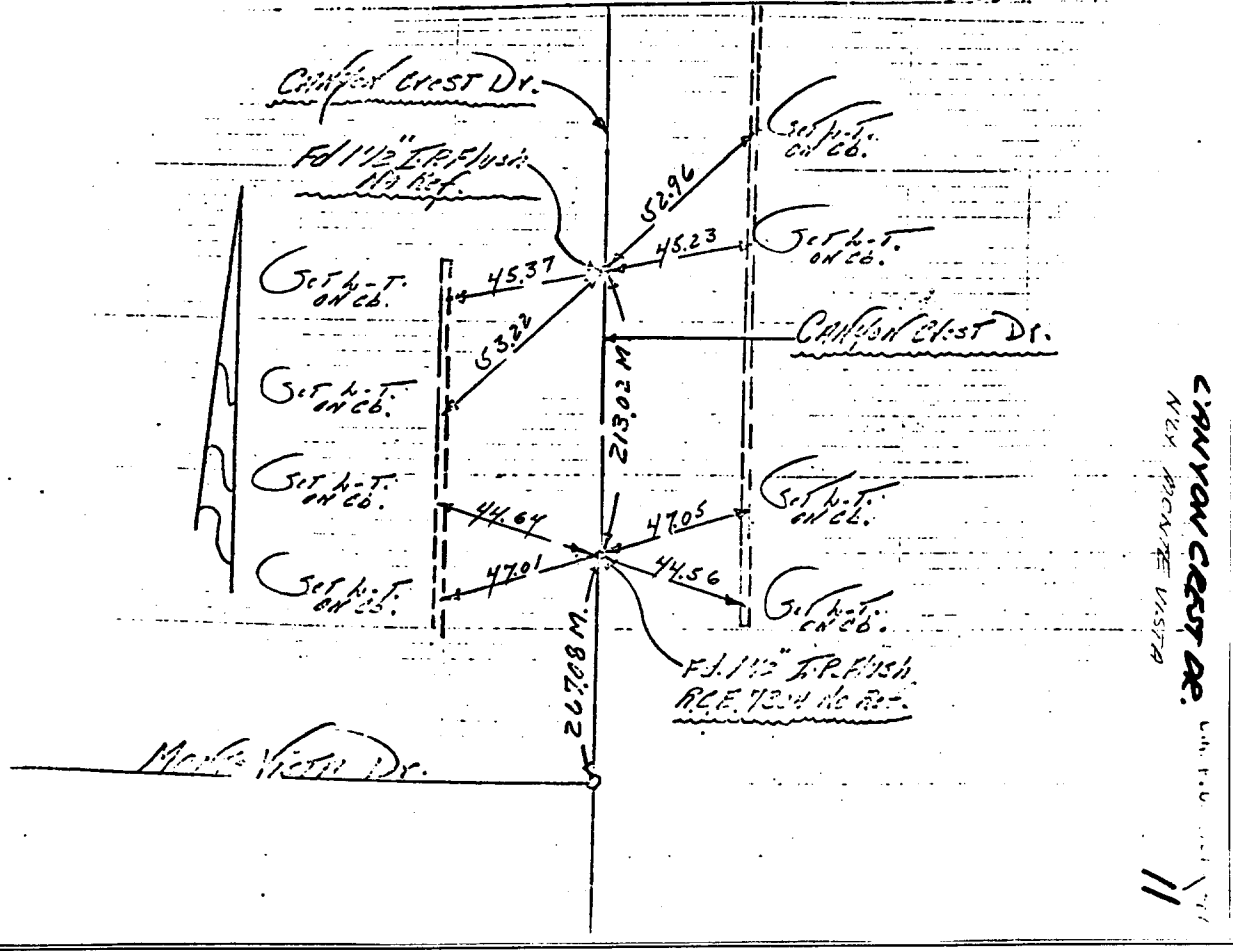 CANYON CREST Dr.
Fd 1 1/2" I.P. Flush
No Ref.
Set L.T.
on Cb.
52.96
45.23
Set L.T.
on Cb.
Set L.T.
on Cb.
45.37
53.22
CANYON CREST Dr.
213.02 M.
Set L.T.
on Cb.
Set L.T.
on Cb.
44.64
47.05
Set L.T.
on Cb.
Set L.T.
on Cb.
47.01
44.56
Set L.T.
on Cb.
267.08 M.
Fd. 1 1/2" I.P. Flush
R.C.E. No Ref.
Monte Vista Dr.
CANYON CREST DR.
N'LY MONTE VISTA
11